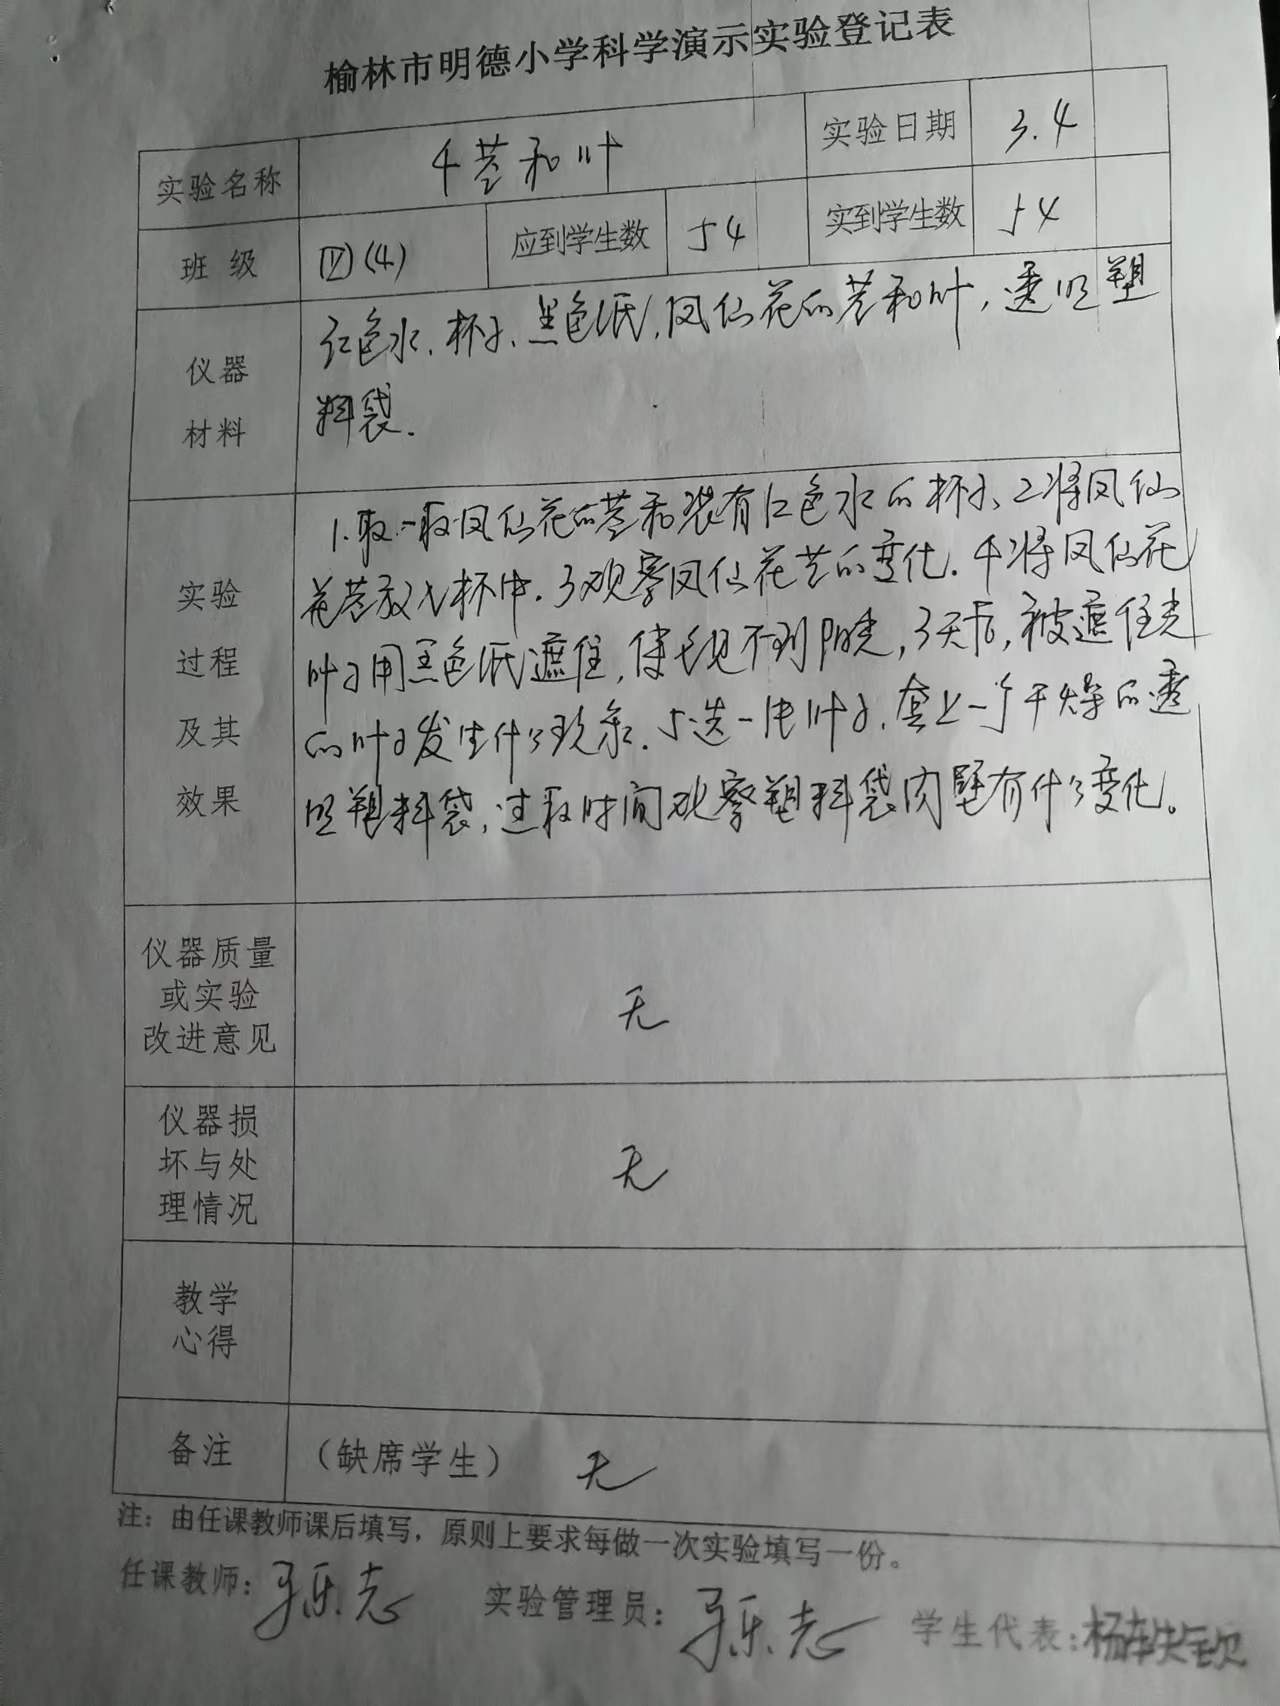 榆林市明德小学科学演示实验登记表
实验名称 4茎和叶 实验日期 3.4
班级 四(4) 应到学生数 54 实到学生数 54
仪器材料
红色水、杯子、黑色纸、凤仙花的茎和叶,透明塑
料袋.
实验过程及其效果
1.取一段凤仙花的茎和装有红色水的杯子、2将凤仙
花茎放入杯中.3观察凤仙花茎的变化.4将凤仙花
叶子用黑色纸遮住,使它见不到阳光,3天后,被遮住光
的叶子发生什么现象.5选一片叶子,套上一个干燥的透
明塑料袋,过段时间观察塑料袋内壁有什么变化。
仪器质量或实验改进意见 无
仪器损坏与处理情况 无
教学心得
备注 (缺席学生) 无
注：由任课教师课后填写，原则上要求每做一次实验填写一份。
任课教师: 实验管理员: 学生代表:杨